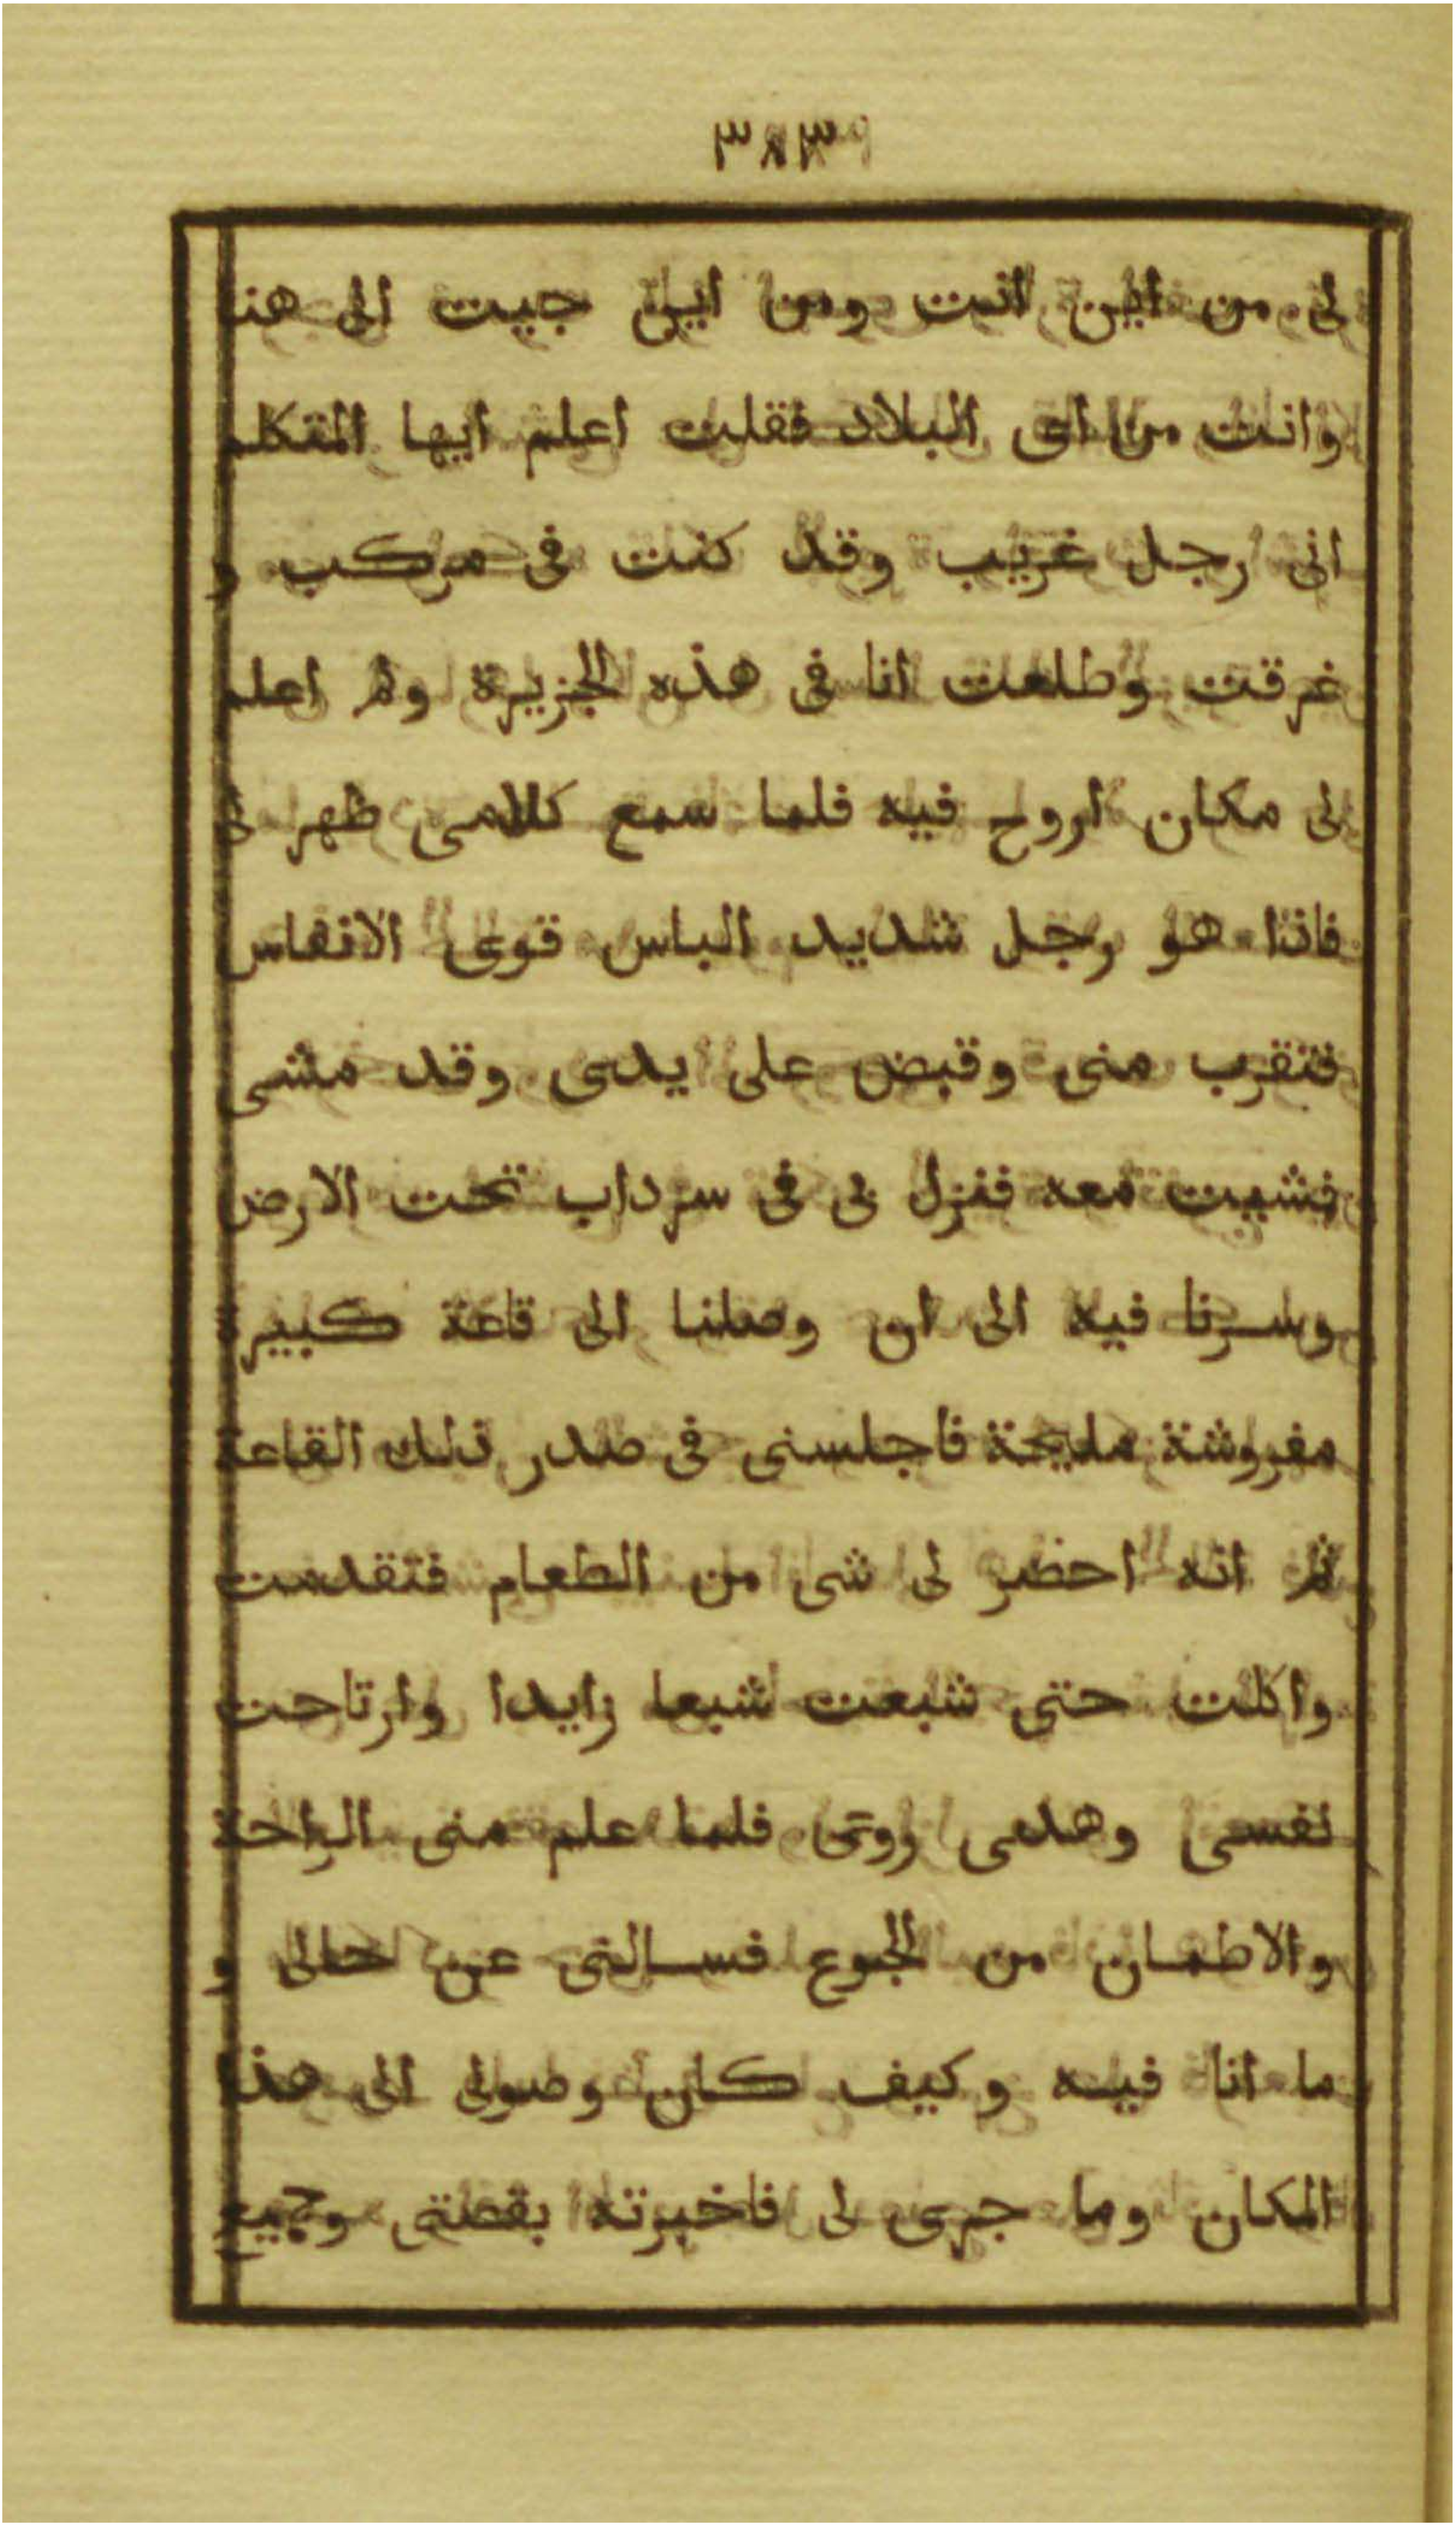 لى من اين انت ومن اين جيت الى هنا
وانت من اى البلاد فقلت اعلم ايها المتكلم
انى رجل غريب وقد كنت فى مركب و
غرقت وطلعت انا فى هذه الجزيرة ولم اعلم
لى مكان اروح فيه فلما سمع كلامى ظهر لى
فاذا هو رجل شديد الباس قوى الانفاس
فتقرب منى وقبض على يدى وقد مشى
فمشيت معه فنزل بى فى سرداب تحت الارض
وسرنا فيه الى ان وصلنا الى قاعة كبيرة
مفروشة مليحة فاجلسنى فى صدر تلك القاعة
ثم انه احضر لى شى من الطعام فتقدمت
واكلت حتى شبعت شبعا زايدا وارتاحت
نفسى وهدى روعى فلما علم منى الراحة
والاطمان من الجوع فسالنى عن حالى و
ما انا فيه وكيف كان وصولى الى هذا
المكان وما جرى لى فاخبرته بقصتى وجميع